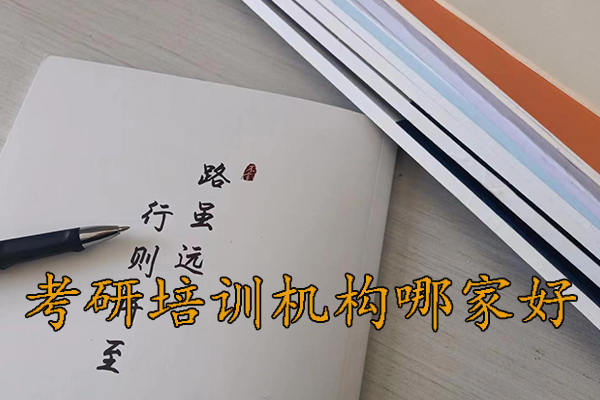 路虽远
行则
至
考研培训机构哪家好